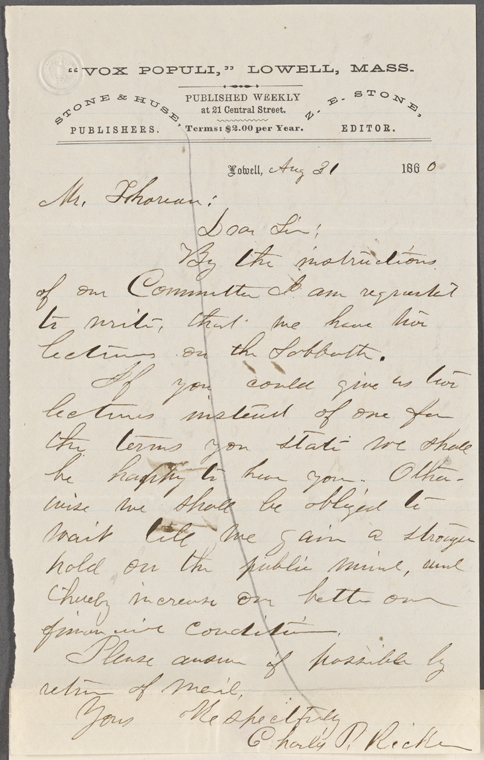 "VOX POPULI," LOWELL, MASS.
STONE & HUSE,
PUBLISHERS.
PUBLISHED WEEKLY
at 21 Central Street.
Terms: $2.00 per Year.
Z. E. STONE,
EDITOR.
Lowell, Aug 31 1860
Mr. Thoreau:
Dear Sir;
By the instructions
of our Committee I am requested
to write, that we have two
lectures on the Sabbath.
If you could give us two
lectures instead of one for
the terms you state we shall
be happy to hear you. Other-
wise we shall be obliged to
wait till we gain a stronger
hold on the public mind, and
thereby increase or better our
financial condition.
Please answer if possible by
return of mail.
Yours Respectfully
Charles P. Ricker